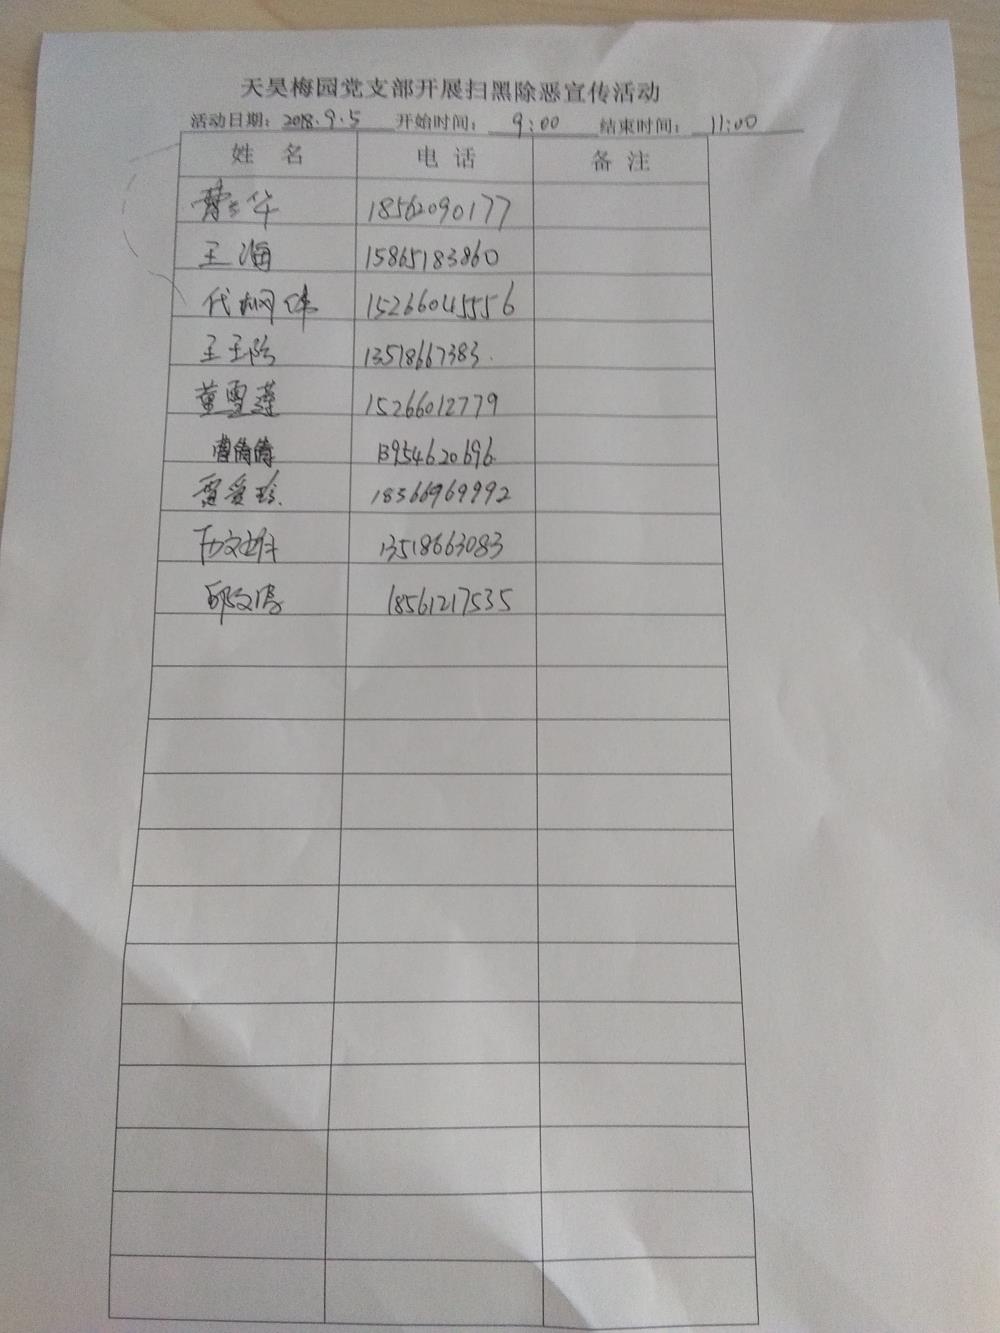 天昊梅园党支部开展扫黑除恶宣传活动
活动日期：2018.9.5 开始时间：9:00 结束时间：11:00
姓 名 电 话 备 注
华 18562090177
王海 15865183860
代 伟 15266045556
王玉 13518667383.
董雪莲 15266012779
曹倩倩 13954620696
贾爱珍. 18566969992
文 13518663083
邱文涛 18561217535